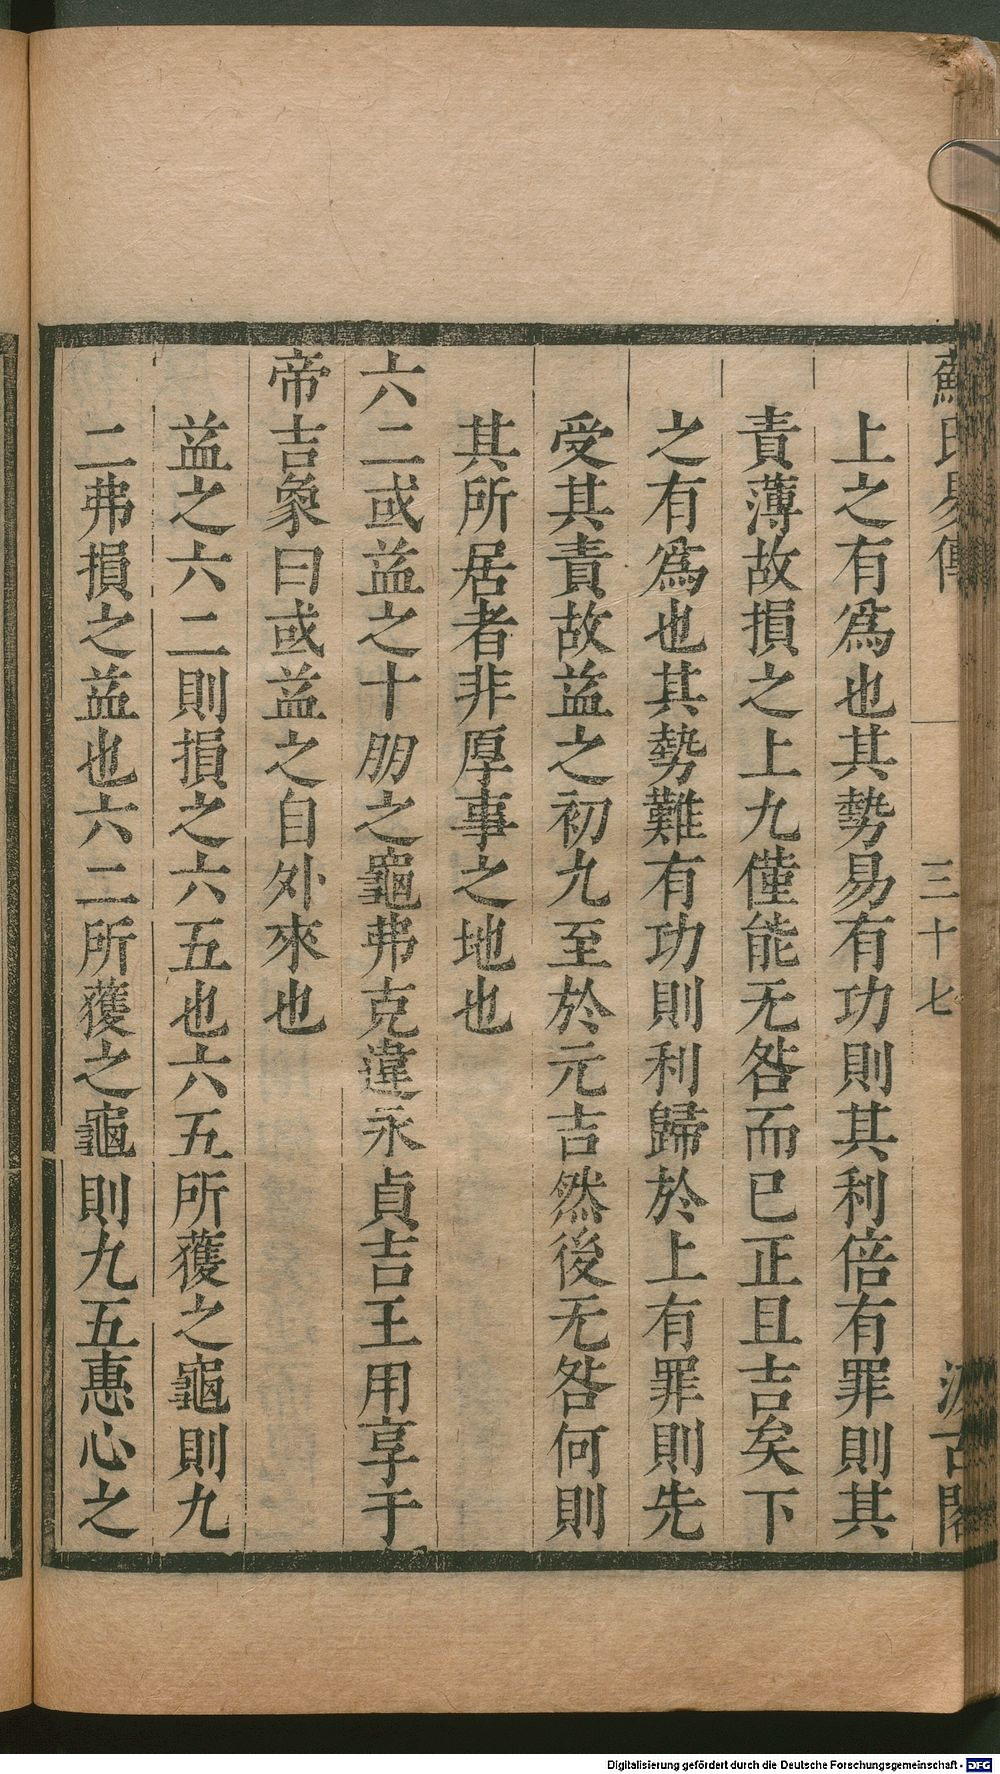 蘇氏易傳
三十七
汲古閣
上之有爲也其勢易有功則其利倍有罪則其
責薄故損之上九僅能无咎而已正且吉矣下
之有爲也其勢難有功則利歸於上有罪則先
受其責故益之初九至於元吉然後无咎何則
其所居者非厚事之地也
六二或益之十朋之龜弗克違永貞吉王用享于
帝吉象曰或益之自外來也
益之六二則損之六五也六五所獲之龜則九
二弗損之益也六二所獲之龜則九五惠心之
Digitalisierung gefördert durch die Deutsche Forschungsgemeinschaft - DFG